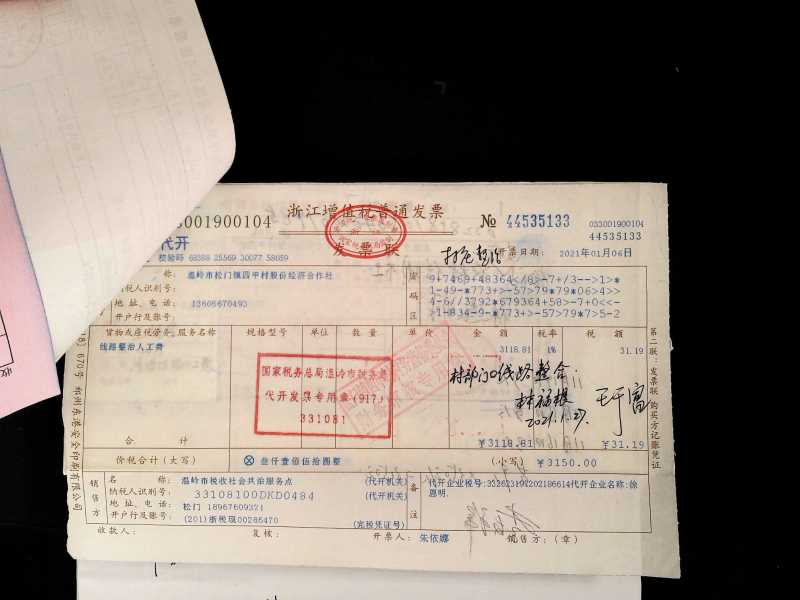 3001900104
浙江增值税普通发票
发票联
№ 44535133
033001900104
44535133
代开
校验码 68388 25569 30077 58059
开票日期: 2021年01月06日
名 称: 温岭市松门镇四甲村股份经济合作社
纳税人识别号:
地 址、电 话: 13606670493
开户行及账号:
密码区
9+7469+48364</8>-7+/3--->1>*
1-49-*773+>-57>79*79*06>4>>
4-6//3792*679364+58>-7+0<<-
>1-834-9-*773+>-57>79*7>5-2
货物或应税劳务、服务名称
规格型号
单位
数 量
单 价
金 额
税率
税 额
线路整治人工费
3118.81
1%
31.19
国家税务总局温岭市税务局
代开发票专用章(917)
331081
村部门口线路整合.
2021.1.27.
合 计
¥3118.81
¥31.19
价税合计(大写)
叁仟壹佰伍拾圆整
(小写) ¥3150.00
销售方
名 称: 温岭市税收社会共治服务点
(代开机关)
纳税人识别号: 33108100DKD0484
(代开机关)
地 址、电 话: 松门 18967609321
开户行及账号: (201)浙税现00286470
(完税凭证号)
备注
代开企业名称:徐恩明.
收款人:
复核:
开票人: 朱依娜
销售方:(章)
第二联:发票联 购买方记账凭证
670号 郑州东港安全印刷有限公司